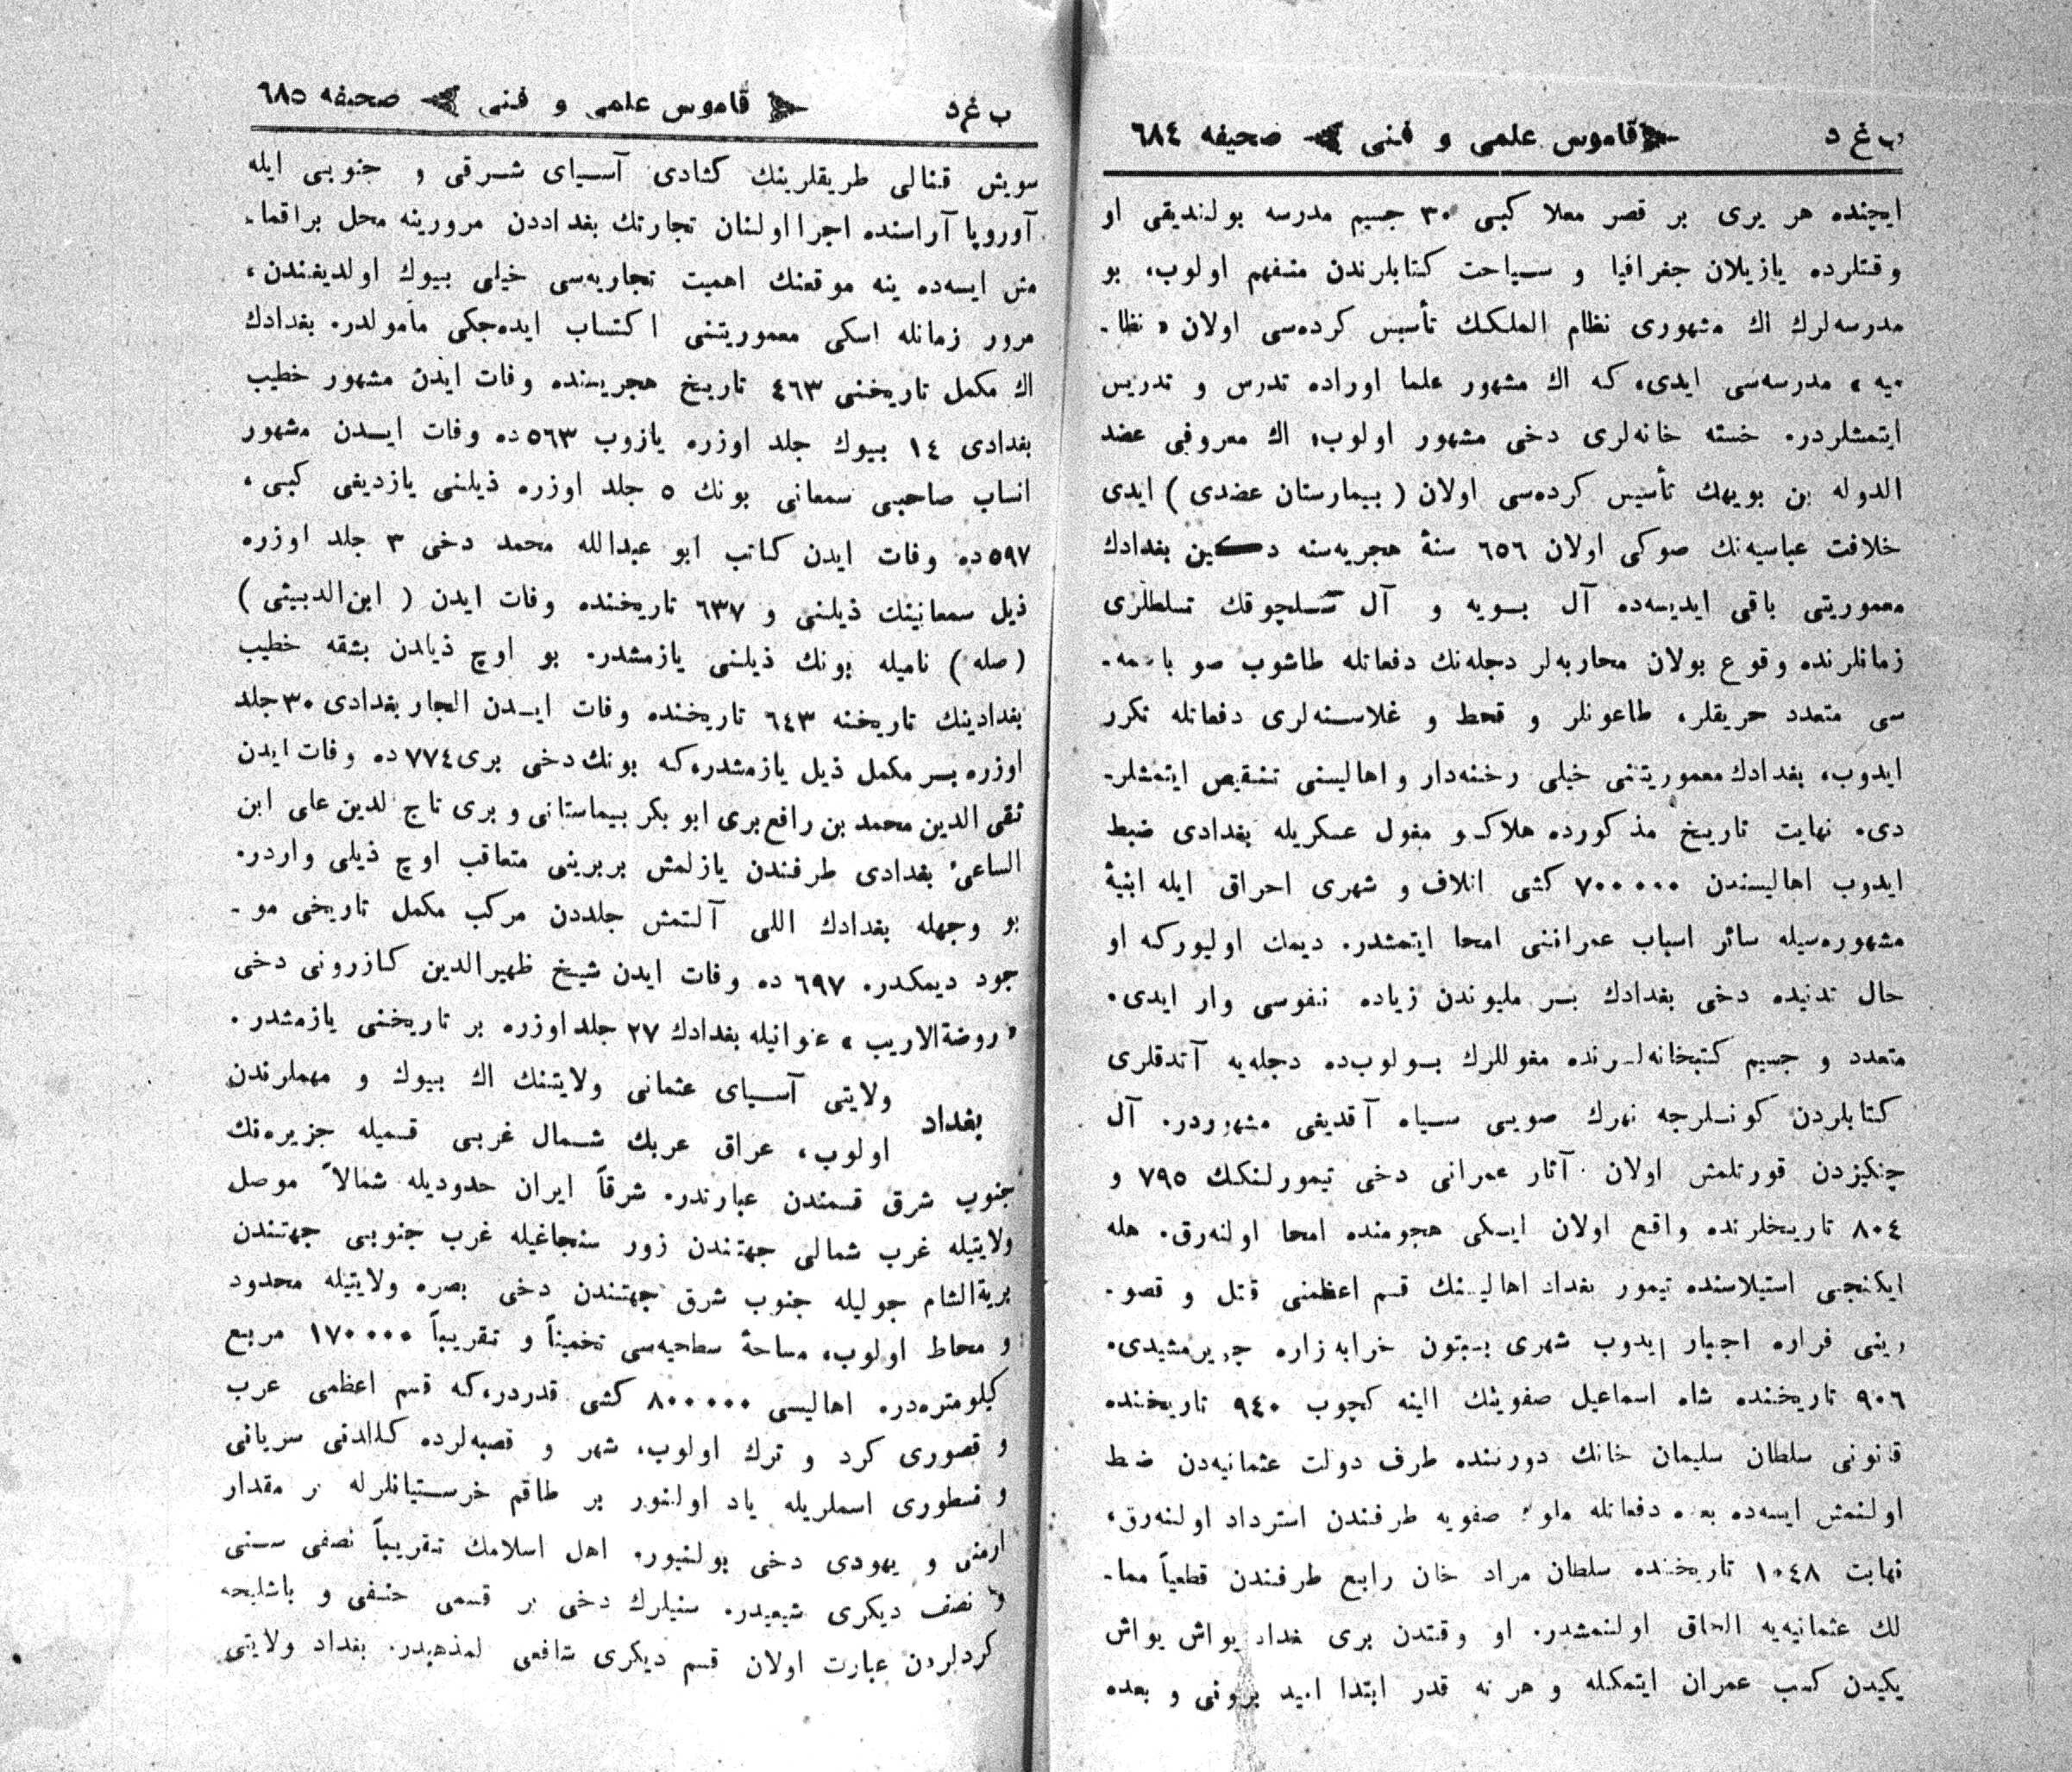 ب غ د ﴿ قاموس علمی و فنی ﴾ صحیفه ٦٨٤
ایچنده هر یری بر قصر معلا کبی ٣٠ جسیم مدرسه بولندیغی او
وقتلرده یازیلان جغرافیا و سیاحت کتابلرندن متفهم اولوب، بو
مدرسه‌لرك اك مشهوری نظام الملکك تأسیس کرده‌سی اولان « نظا-
میه » مدرسه‌سی ایدی، که اك مشهور علما اوراده تدرس و تدریس
ایتمشلردر. خسته خانه‌لری دخی مشهور اولوب، اك معروفی عضد
الدوله بن بویهك تأسیس کرده‌سی اولان ( بیمارستان عضدی ) ایدی
خلافت عباسیه‌نك صوکی اولان ٦٥٦ سنهٔ هجریه‌سنه دکین بغدادك
معموریتی باقی ایدیسه‌ده آل بویه و آل سلجوقك تسلطلری
زمانلرنده وقوع بولان محاربه‌لر دجله‌نك دفعاتله طاشوب صو باصمه-
سی متعدد حریقلر، طاعونلر و قحط و غلاسنه‌لری دفعاتله تکرر
ایدوب، بغدادك معموریتنی خیلی رخنه‌دار و اهالیسنی تنقیص ایتمشلر-
دی. نهایت تاریخ مذکورده هلاکو مغول عسکریله بغدادی ضبط
ایدوب اهالیسندن ٧٠٠٠٠٠ کشی اتلاف و شهری احراق ایله ابنیهٔ
مشهوره‌سیله سائر اسباب عمراننی امحا ایتمشدر. دیمك اولیورکه او
حال تدنیده دخی بغدادك بر ملیوندن زیاده نفوسی وار ایدی.
متعدد و جسیم کتبخانه‌لرنده مغوللرك بولوب‌ده دجله‌یه آتدقلری
کتابلردن کونلرجه نهرك صویی سیاه آقدیغی مشهوردر. آل
چنکیزدن قورتلمش اولان آثار عمرانی دخی تیمورلنکك ٧٩٥ و
٨٠٤ تاریخلرنده واقع اولان ایکی هجومنده امحا اولنه‌رق. هله
ایکنجی استیلاسنده تیمور بغداد اهالیسنك قسم اعظمنی قتل و قصو-
رینی فراره اجبار ایدوب شهری بتون خرابه زاره چویرمشیدی.
٩٠٦ تاریخنده شاه اسماعیل صفوینك الینه کچوب ٩٤٠ تاریخنده
قانونی سلطان سلیمان خانك دورنده طرف دولت عثمانیه‌دن ضبط
اولنمش ایسه‌ده بعده دفعاتله ملوك صفویه طرفندن استرداد اولنه‌رق،
نهایت ١٠٤٨ تاریخنده سلطان مراد خان رابع طرفندن قطعیاً مما-
لك عثمانیه‌یه الحاق اولنمشدر. او وقتدن بری بغداد یواش یواش
یکیدن کسب عمران ایتمکله و هر نه قدر ابتدا امید برونی و بعده
ب غ د ﴿ قاموس علمی و فنی ﴾ صحیفه ٦٨٥
سویش قنالی طریقلرینك کشادی آسیای شرقی و جنوبی ایله
آوروپا آراسنده اجرا اولنان تجارتك بغداددن مرورینه محل براقما-
مش ایسه‌ده ینه موقعنك اهمیت تجاریه‌سی خیلی بیوك اولدیغندن،
مرور زمانله اسکی معموریتنی اکتساب ایده‌جکی مأمولدر. بغدادك
اك مکمل تاریخنی ٤٦٣ تاریخ هجریسنده وفات ایدن مشهور خطیب
بغدادی ١٤ بیوك جلد اوزره یازوب ٥٦٣ ده وفات ایدن مشهور
انساب صاحبی سمعانی بونك ٥ جلد اوزره ذیلنی یازدیغی کبی،
٥٩٧ ده وفات ایدن کاتب ابو عبدالله محمد دخی ٣ جلد اوزره
ذیل سمعانینك ذیلنی و ٦٣٧ تاریخنده وفات ایدن ( ابن‌الدبیثی )
( صله ) نامیله بونك ذیلنی یازمشدر. بو اوچ ذیلدن بشقه خطیب
بغدادینك تاریخنه ٦٤٣ تاریخنده وفات ایدن النجار بغدادی ٣٠ جلد
اوزره بر مکمل ذیل یازمشدرکه بونك دخی بری ٧٧٤ ده وفات ایدن
تقی الدین محمد بن رافع بری ابو بکر بیماستانی و بری تاج لدین علی ابن
الساعیٔ بغدادی طرفندن یازلمش بربرینی متعاقب اوچ ذیلی واردر.
بو وجهله بغدادك اللی آلتمش جلددن مرکب مکمل تاریخی مو-
جود دیمکدر. ٦٩٧ ده وفات ایدن شیخ ظهیرالدین کازرونی دخی
« روضة‌الاریب » عنوانیله بغدادك ٢٧ جلد اوزره بر تاریخنی یازمشدر.
بغداد ولایتی آسیای عثمانی ولایتنك اك بیوك و مهملرندن
اولوب، عراق عربك شمال غربی قسمیله جزیره‌نك
جنوب شرق قسمندن عبارتدر. شرقاً ایران حدودیله شمالاً موصل
ولایتیله غرب شمالی جهتندن زور سنجاغیله غرب جنوبی جهتندن
بریة‌الشام چولیله جنوب شرق جهتندن دخی بصره ولایتیله محدود
و محاط اولوب، مساحهٔ سطحیه‌سی تخمیناً و تقریباً ١٧٠٠٠٠ مربع
کیلومتره‌در. اهالیسی ٨٠٠٠٠٠ کشی قدردر، که قسم اعظمی عرب
و قصوری کرد و ترك اولوب، شهر و قصبه‌لرده کلدانی سریانی
و نسطوری اسملریله یاد اولنور بر طاقم خرستیانلرله بر مقدار
ارمنی و یهودی دخی بولنیور. اهل اسلامك تقریباً نصفی سنی
و نصف دیکری شیعیدر. سنیلرك دخی بر قسمی حنفی و باشلیجه
کردلردن عبارت اولان قسم دیکری شافعی لمذهبدر. بغداد ولایتی